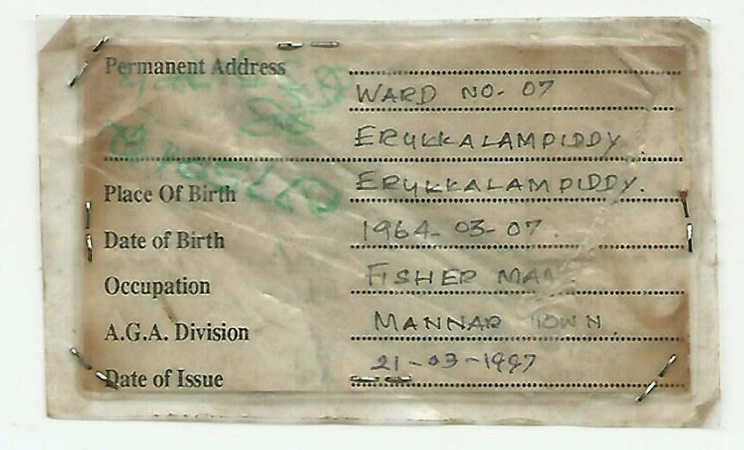 Permanent Address
WARD NO- 07
ERUKKALAMPIDDY
Place Of Birth ERUKKALAMPIDDY.
Date of Birth 1964-03-07
Occupation FISHER MAN
A.G.A. Division MANNAR TOWN.
Date of Issue 21-03-1997